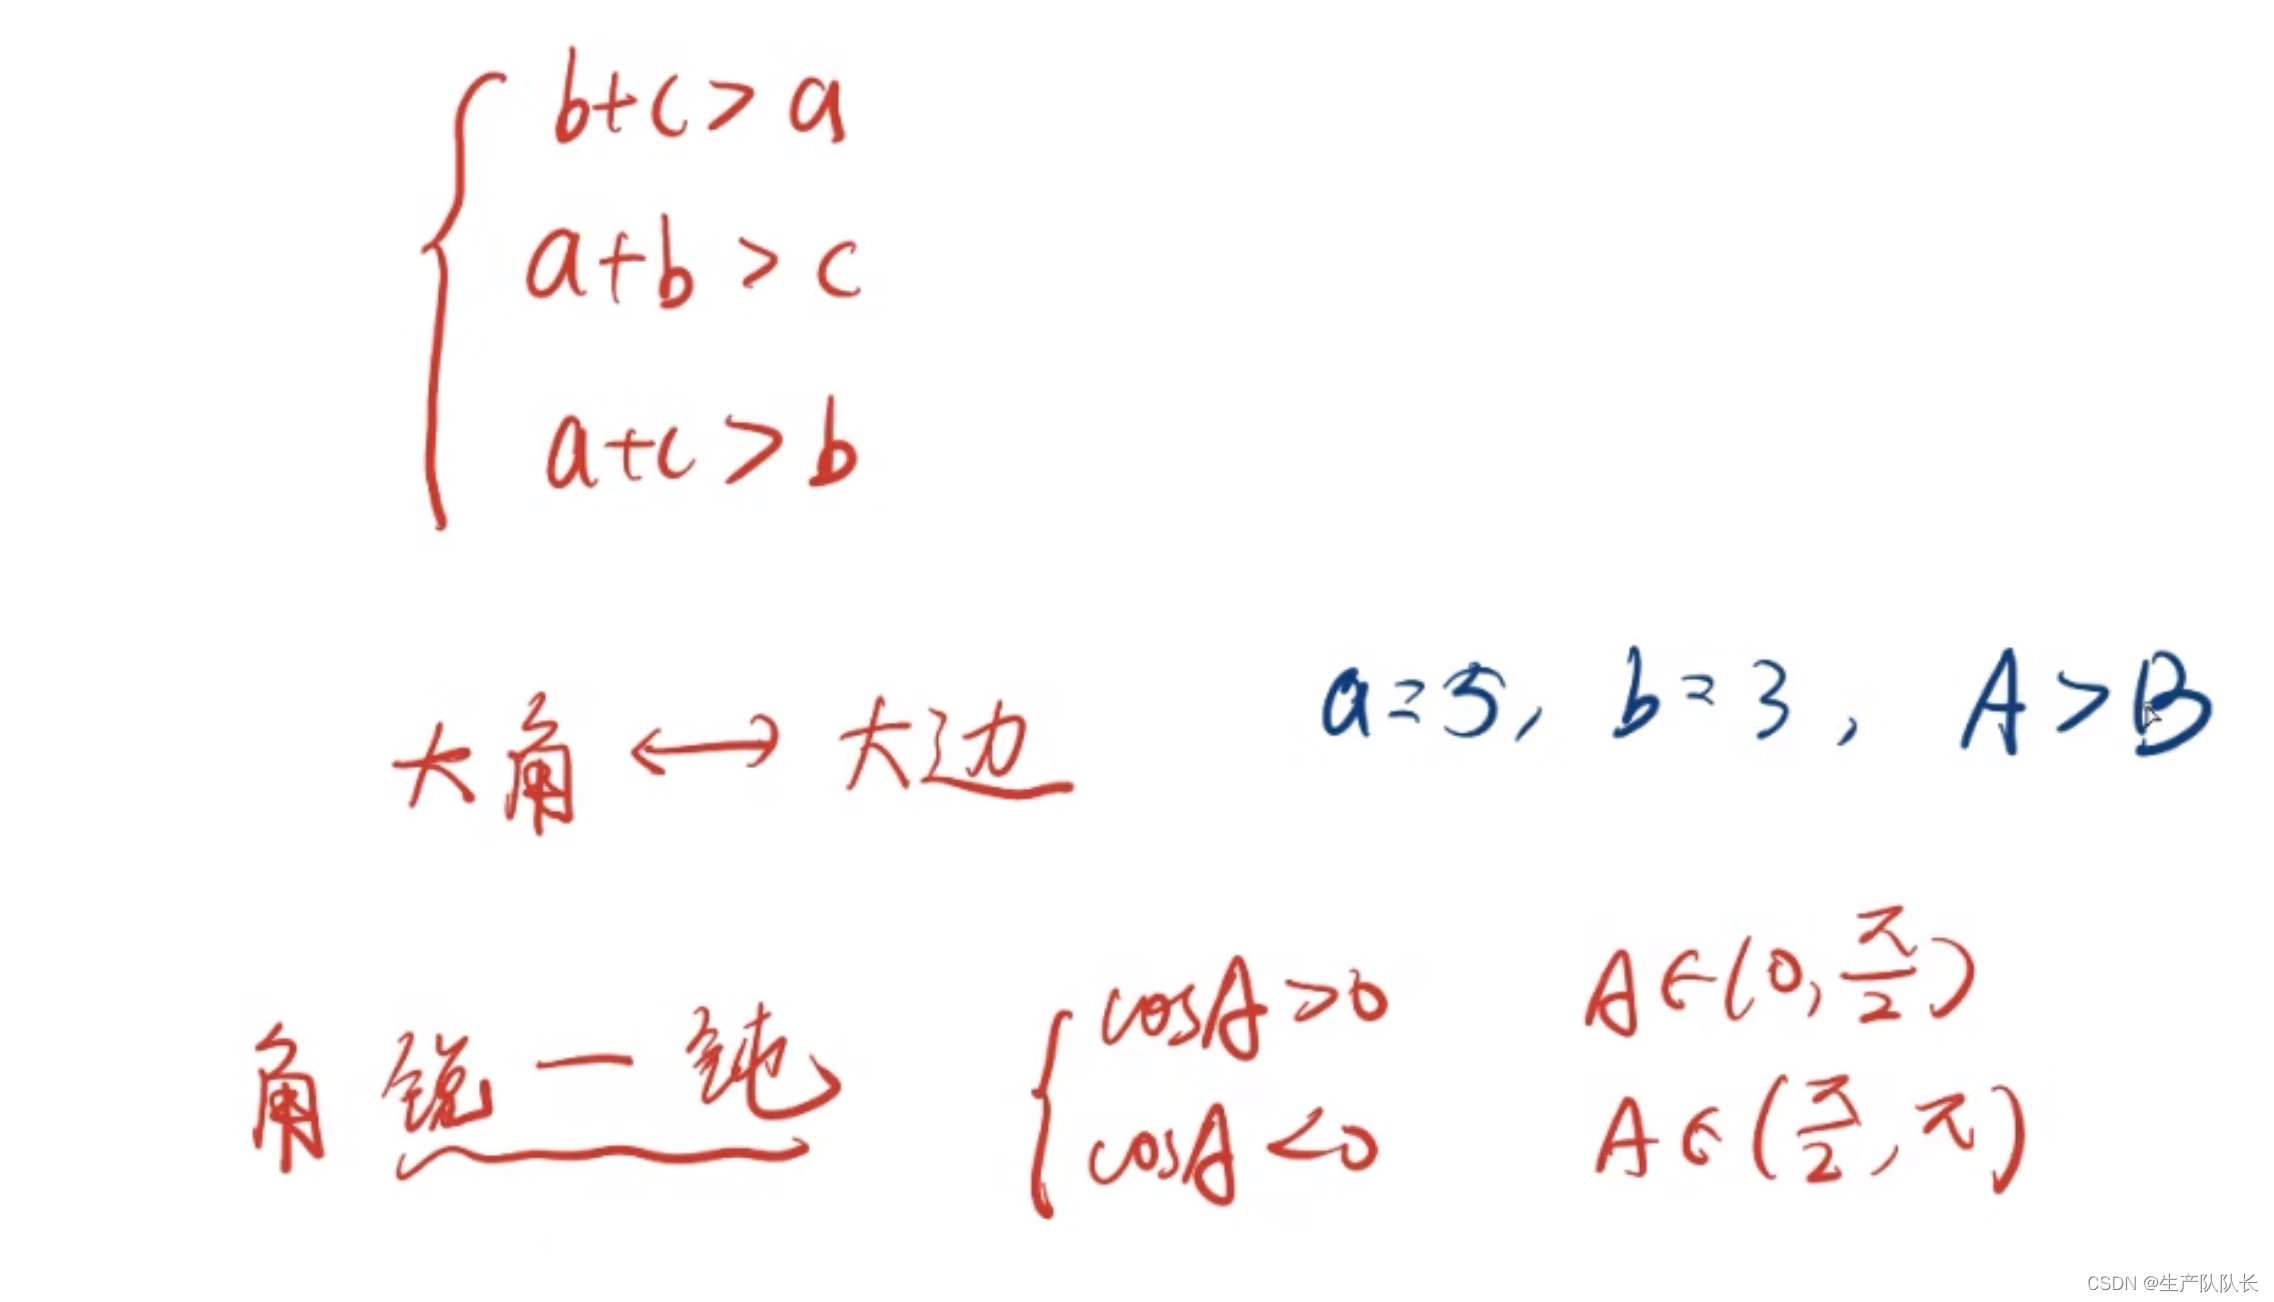 b+c>a
a+b>c
a+c>b
大角 ↔ 大边 a=5, b=3, A>B
角 锐一钝 cosA>0 A∈(0, π/2)
cosA<0 A∈(π/2, π)
CSDN @生产队队长